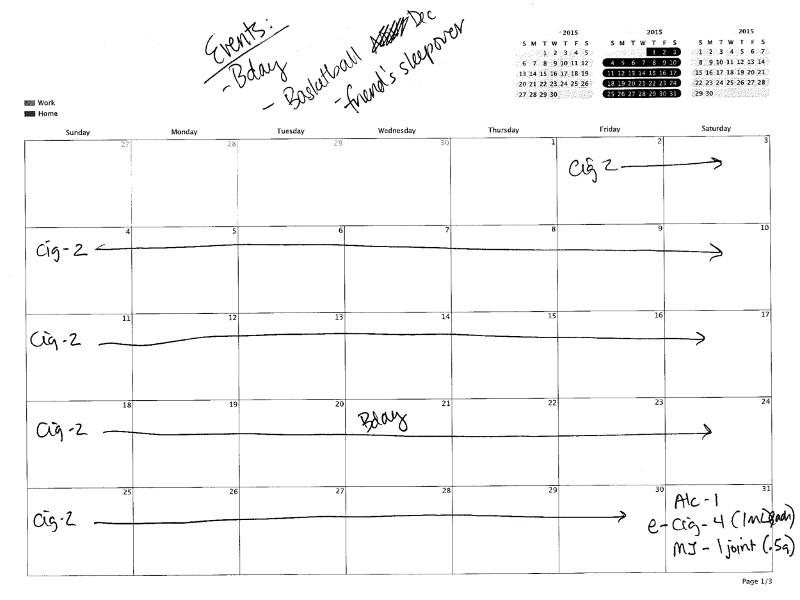 Events:
-Bday
- Basketball Dec
-friend's sleepover
2015
S M T W T F S
1 2 3 4 5
6 7 8 9 10 11 12
13 14 15 16 17 18 19
20 21 22 23 24 25 26
27 28 29 30
2015
S M T W T F S
1 2 3
4 5 6 7 8 9 10
11 12 13 14 15 16 17
18 19 20 21 22 23 24
25 26 27 28 29 30 31
2015
S M T W T F S
1 2 3 4 5 6 7
8 9 10 11 12 13 14
15 16 17 18 19 20 21
22 23 24 25 26 27 28
29 30
Work
Home
Sunday Monday Tuesday Wednesday Thursday Friday Saturday
27 28 29 30 1 2 3
Cig 2
4 5 6 7 8 9 10
Cig-2
11 12 13 14 15 16 17
Cig-2
18 19 20 21 22 23 24
Cig-2 Bday
25 26 27 28 29 30 31
Cig-2
Alc-1
e-Cig-4 (1mL
MJ-1 joint (.5g)
Page 1/3